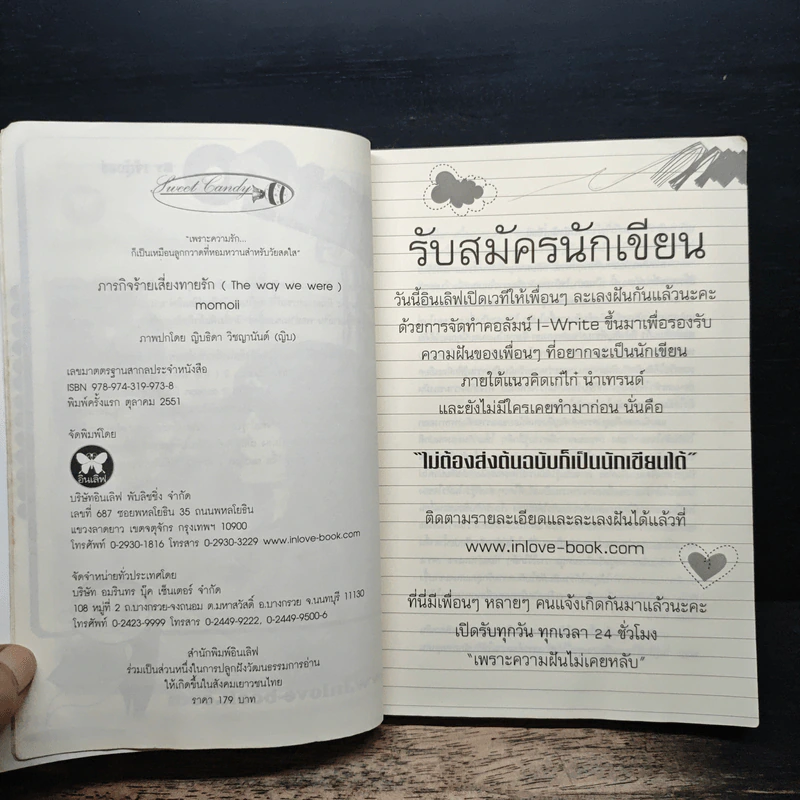 Sweet Candy
"เพราะความรัก...
ก็เป็นเหมือนลูกกวาดที่หอมหวานสำหรับวัยสดใส"
ภารกิจร้ายเสี่ยงทายรัก ( The way we were )
momoii
ภาพปกโดย ญิบธิดา วิชญานันต์ (ญิบ)
เลขมาตรฐานสากลประจำหนังสือ
ISBN 978-974-319-973-8
พิมพ์ครั้งแรก ตุลาคม 2551
จัดพิมพ์โดย
อินเลิฟ
บริษัทอินเลิฟ พับลิชชิ่ง จำกัด
เลขที่ 687 ซอยพหลโยธิน 35 ถนนพหลโยธิน
แขวงลาดยาว เขตจตุจักร กรุงเทพฯ 10900
โทรศัพท์ 0-2930-1816 โทรสาร 0-2930-3229 www.inlove-book.com
จัดจำหน่ายทั่วประเทศโดย
บริษัท อมรินทร์ บุ๊ค เซ็นเตอร์ จำกัด
108 หมู่ที่ 2 ถ.บางกรวย-จงถนอม ต.มหาสวัสดิ์ อ.บางกรวย จ.นนทบุรี 11130
โทร 0-2423-9999 โทรสาร 0-2449-9222, 0-2449-9500-6
สำนักพิมพ์อินเลิฟ
ร่วมเป็นส่วนหนึ่งในการปลูกฝังวัฒนธรรมการอ่าน
ให้เกิดขึ้นในสังคมเยาวชนไทย
ราคา 179 บาท
รับสมัครนักเขียน
วันนี้อินเลิฟเปิดเวทีให้เพื่อนๆ ละเลงฝันกันแล้วนะคะ
ด้วยการจัดทำคอลัมน์ I-Write ขึ้นมาเพื่อรองรับ
ความฝันของเพื่อนๆ ที่อยากจะเป็นนักเขียน
ภายใต้แนวคิดเก๋ไก๋ นำเทรนด์
และยังไม่มีใครเคยทำมาก่อน นั่นคือ
"ไม่ต้องส่งต้นฉบับก็เป็นนักเขียนได้"
ติดตามรายละเอียดและละเลงฝันได้แล้วที่
www.inlove-book.com
ที่นี่มีเพื่อนๆ หลายๆ คนแจ้งเกิดกันมาแล้วนะคะ
เปิดรับทุกวัน ทุกเวลา 24 ชั่วโมง
"เพราะความฝันไม่เคยหลับ"